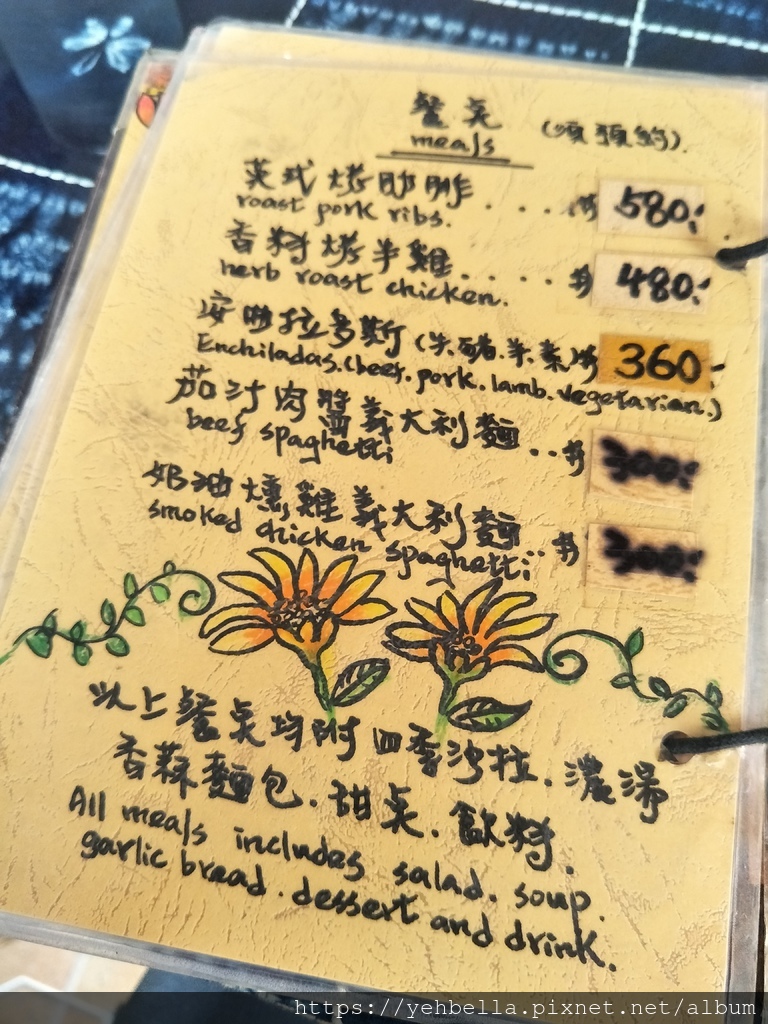 餐点
meals
(須預約).
英式烤肋排....$580.-
roast pork ribs.
香料烤半雞....$480.-
herb roast chicken.
安啦拉多斯(牛.豬.羊.素)$360.-
Enchiladas.(beef.pork.lamb.vegetarian.)
茄汁肉醬義大利麵..$300.-
beef spaghetti
奶油燻雞義大利麵..$300.-
smoked chicken spaghetti
以上餐点均附四季沙拉.濃湯
香蒜麵包.甜点.飲料.
All meals includes salad. soup.
garlic bread. dessert and drink.
https://yehbella.pixnet.net/album